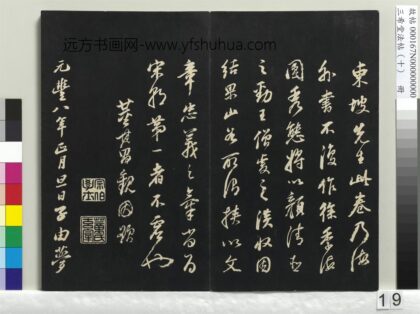 远方书画网-www.yfshuhua.com
東坡先生此卷乃海
外書不復作徐季海
圓秀態將以顏清臣
之勁王僧虔之淡收因
結果山谷所謂挾以文
章忠義之氣當為
宋朝第一者不虛也
董其昌觀因題
元豐八年正月旦日子由夢
故帖 000167N000000000
三希堂法帖（十） 册
19